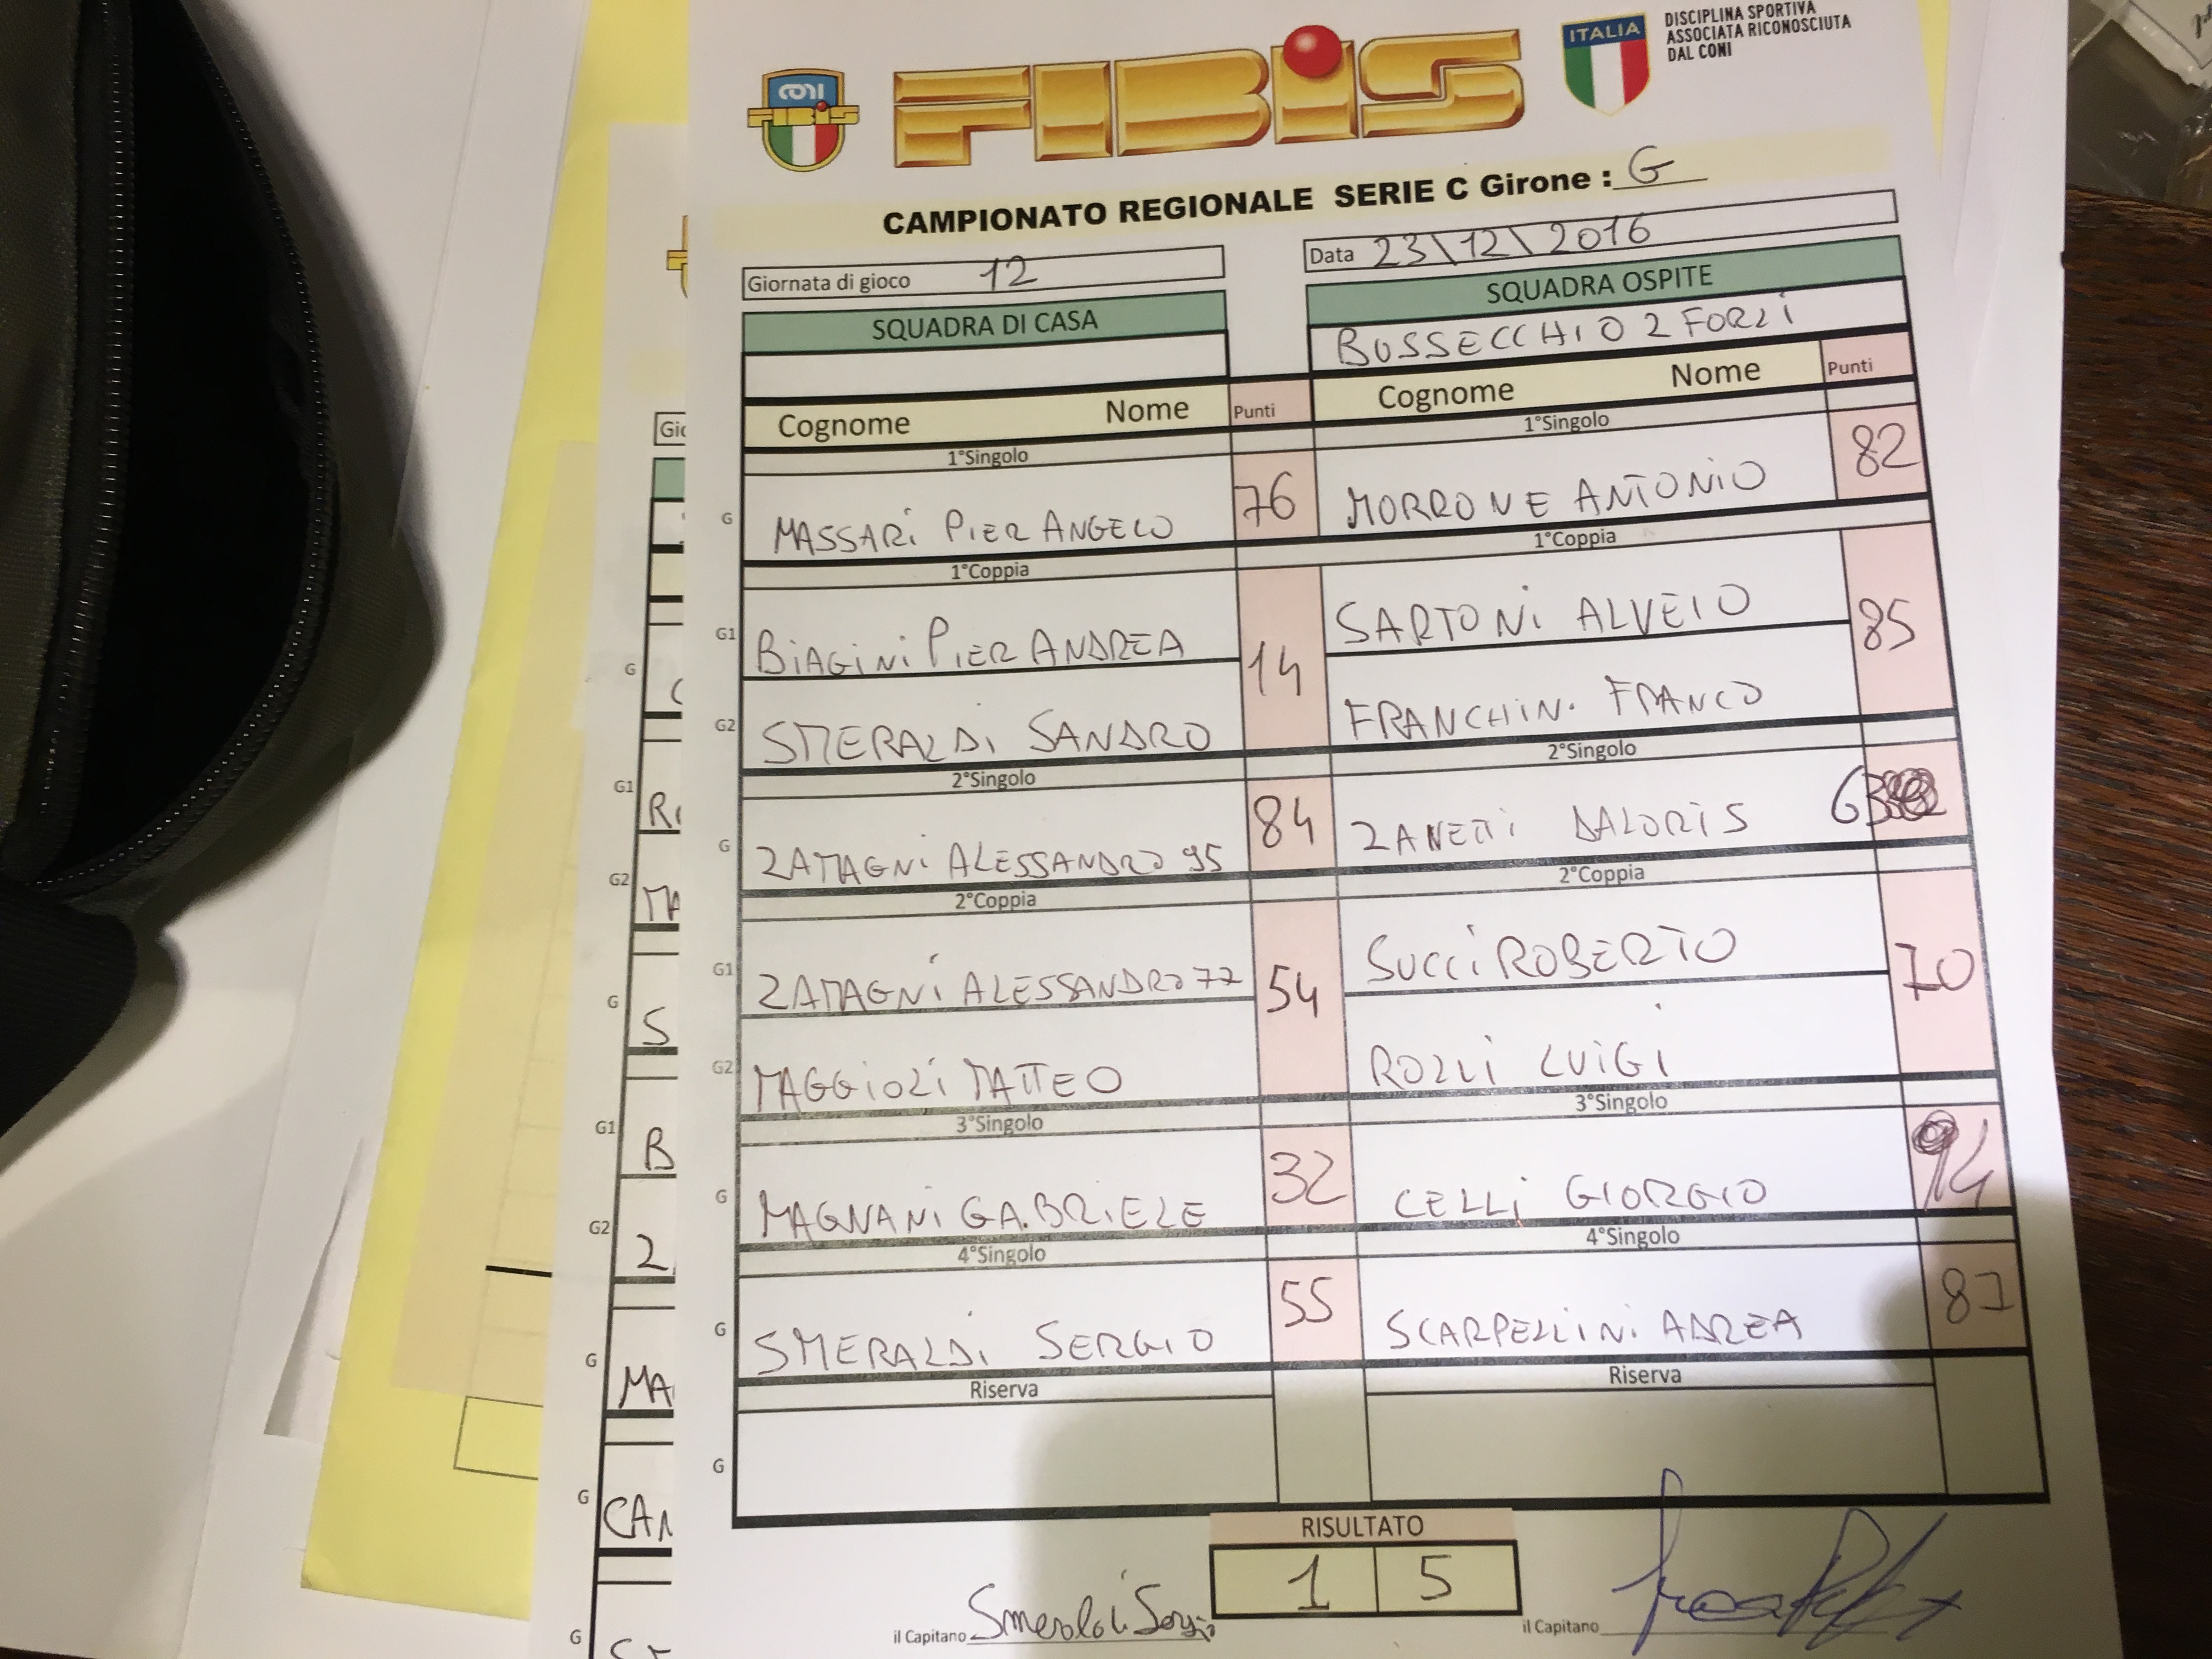 CONI
FIBIS
FIBIS
ITALIA
DISCIPLINA SPORTIVA
ASSOCIATA RICONOSCIUTA
DAL CONI
CAMPIONATO REGIONALE SERIE C Girone : G
Giornata di gioco 12
Data 23\12\2016
SQUADRA DI CASA
SQUADRA OSPITE
BUSSECCHIO 2 FORLì
Cognome Nome Punti Cognome Nome Punti
1°Singolo 1°Singolo
G MASSARi PIER ANGELO 76 MORRONE ANTONIO 82
1°Coppia 1°Coppia
G1 BiAGiNi PIER ANDREA 14 SARTONi ALVEIO 85
G2 SMERALDi SANDRO FRANCHINi FRANCO
2°Singolo 2°Singolo
G ZAMAGNi ALESSANDRO 95 84 ZANETTi DALORIS 63
2°Coppia 2°Coppia
G1 ZAMAGNi ALESSANDRO 77 54 SUCCi ROBERTO 70
G2 MAGGIOLi MATTEO ROLLi LUIGI
3°Singolo 3°Singolo
G MAGNANi GABRIELE 32 CELLi GIORGIO 94
4°Singolo 4°Singolo
G SMERALDi SERGIO 55 SCARPELLINi ADREA 87
Riserva Riserva
G
RISULTATO
1 5
il Capitano Smeraldi Sergio
il Capitano
Gio
G
G1
G2 MA
G S
G1 B
G2 2
G MA
G CAN
G